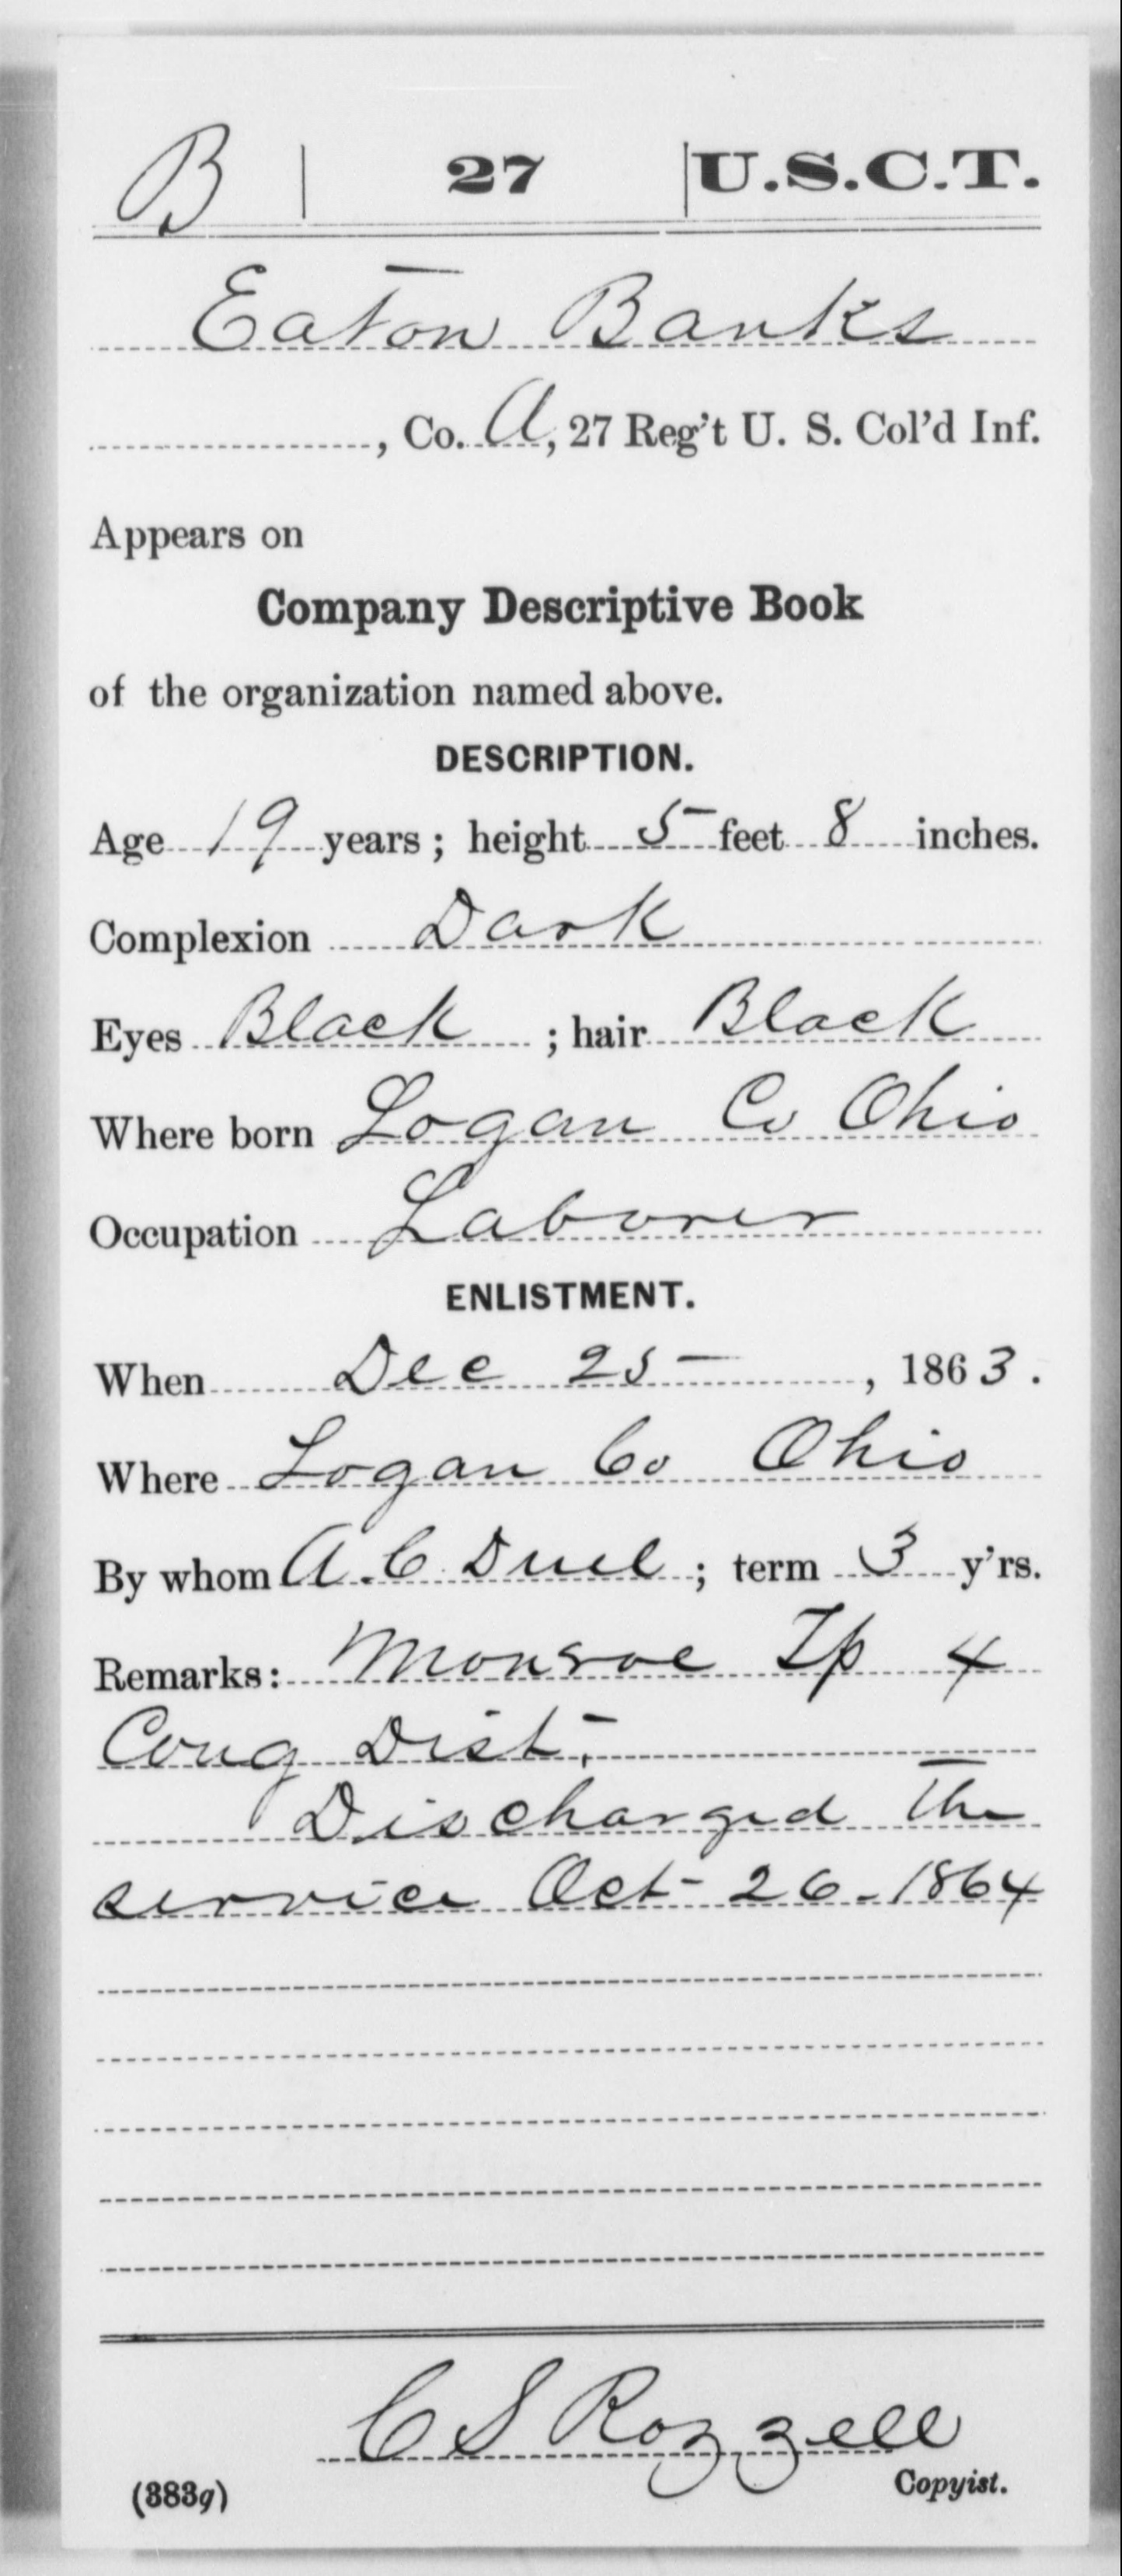 B | 27 | U.S.C.T.
Eaton Banks
, Co. A, 27 Reg't U. S. Col'd Inf.
Appears on
Company Descriptive Book
of the organization named above.
DESCRIPTION.
Age 19 years; height 5 feet 8 inches.
Complexion Dark
Eyes Black ; hair Black
Where born Logan Co Ohio
Occupation Laborer
ENLISTMENT.
When Dec 25 , 1863.
Where Logan Co Ohio
By whom A. C. Duel ; term 3 y'rs.
Remarks: Monroe Tp 4
Cong Dist.
Discharged the
service Oct 26 - 1864
C S Rozzell
(383g) Copyist.